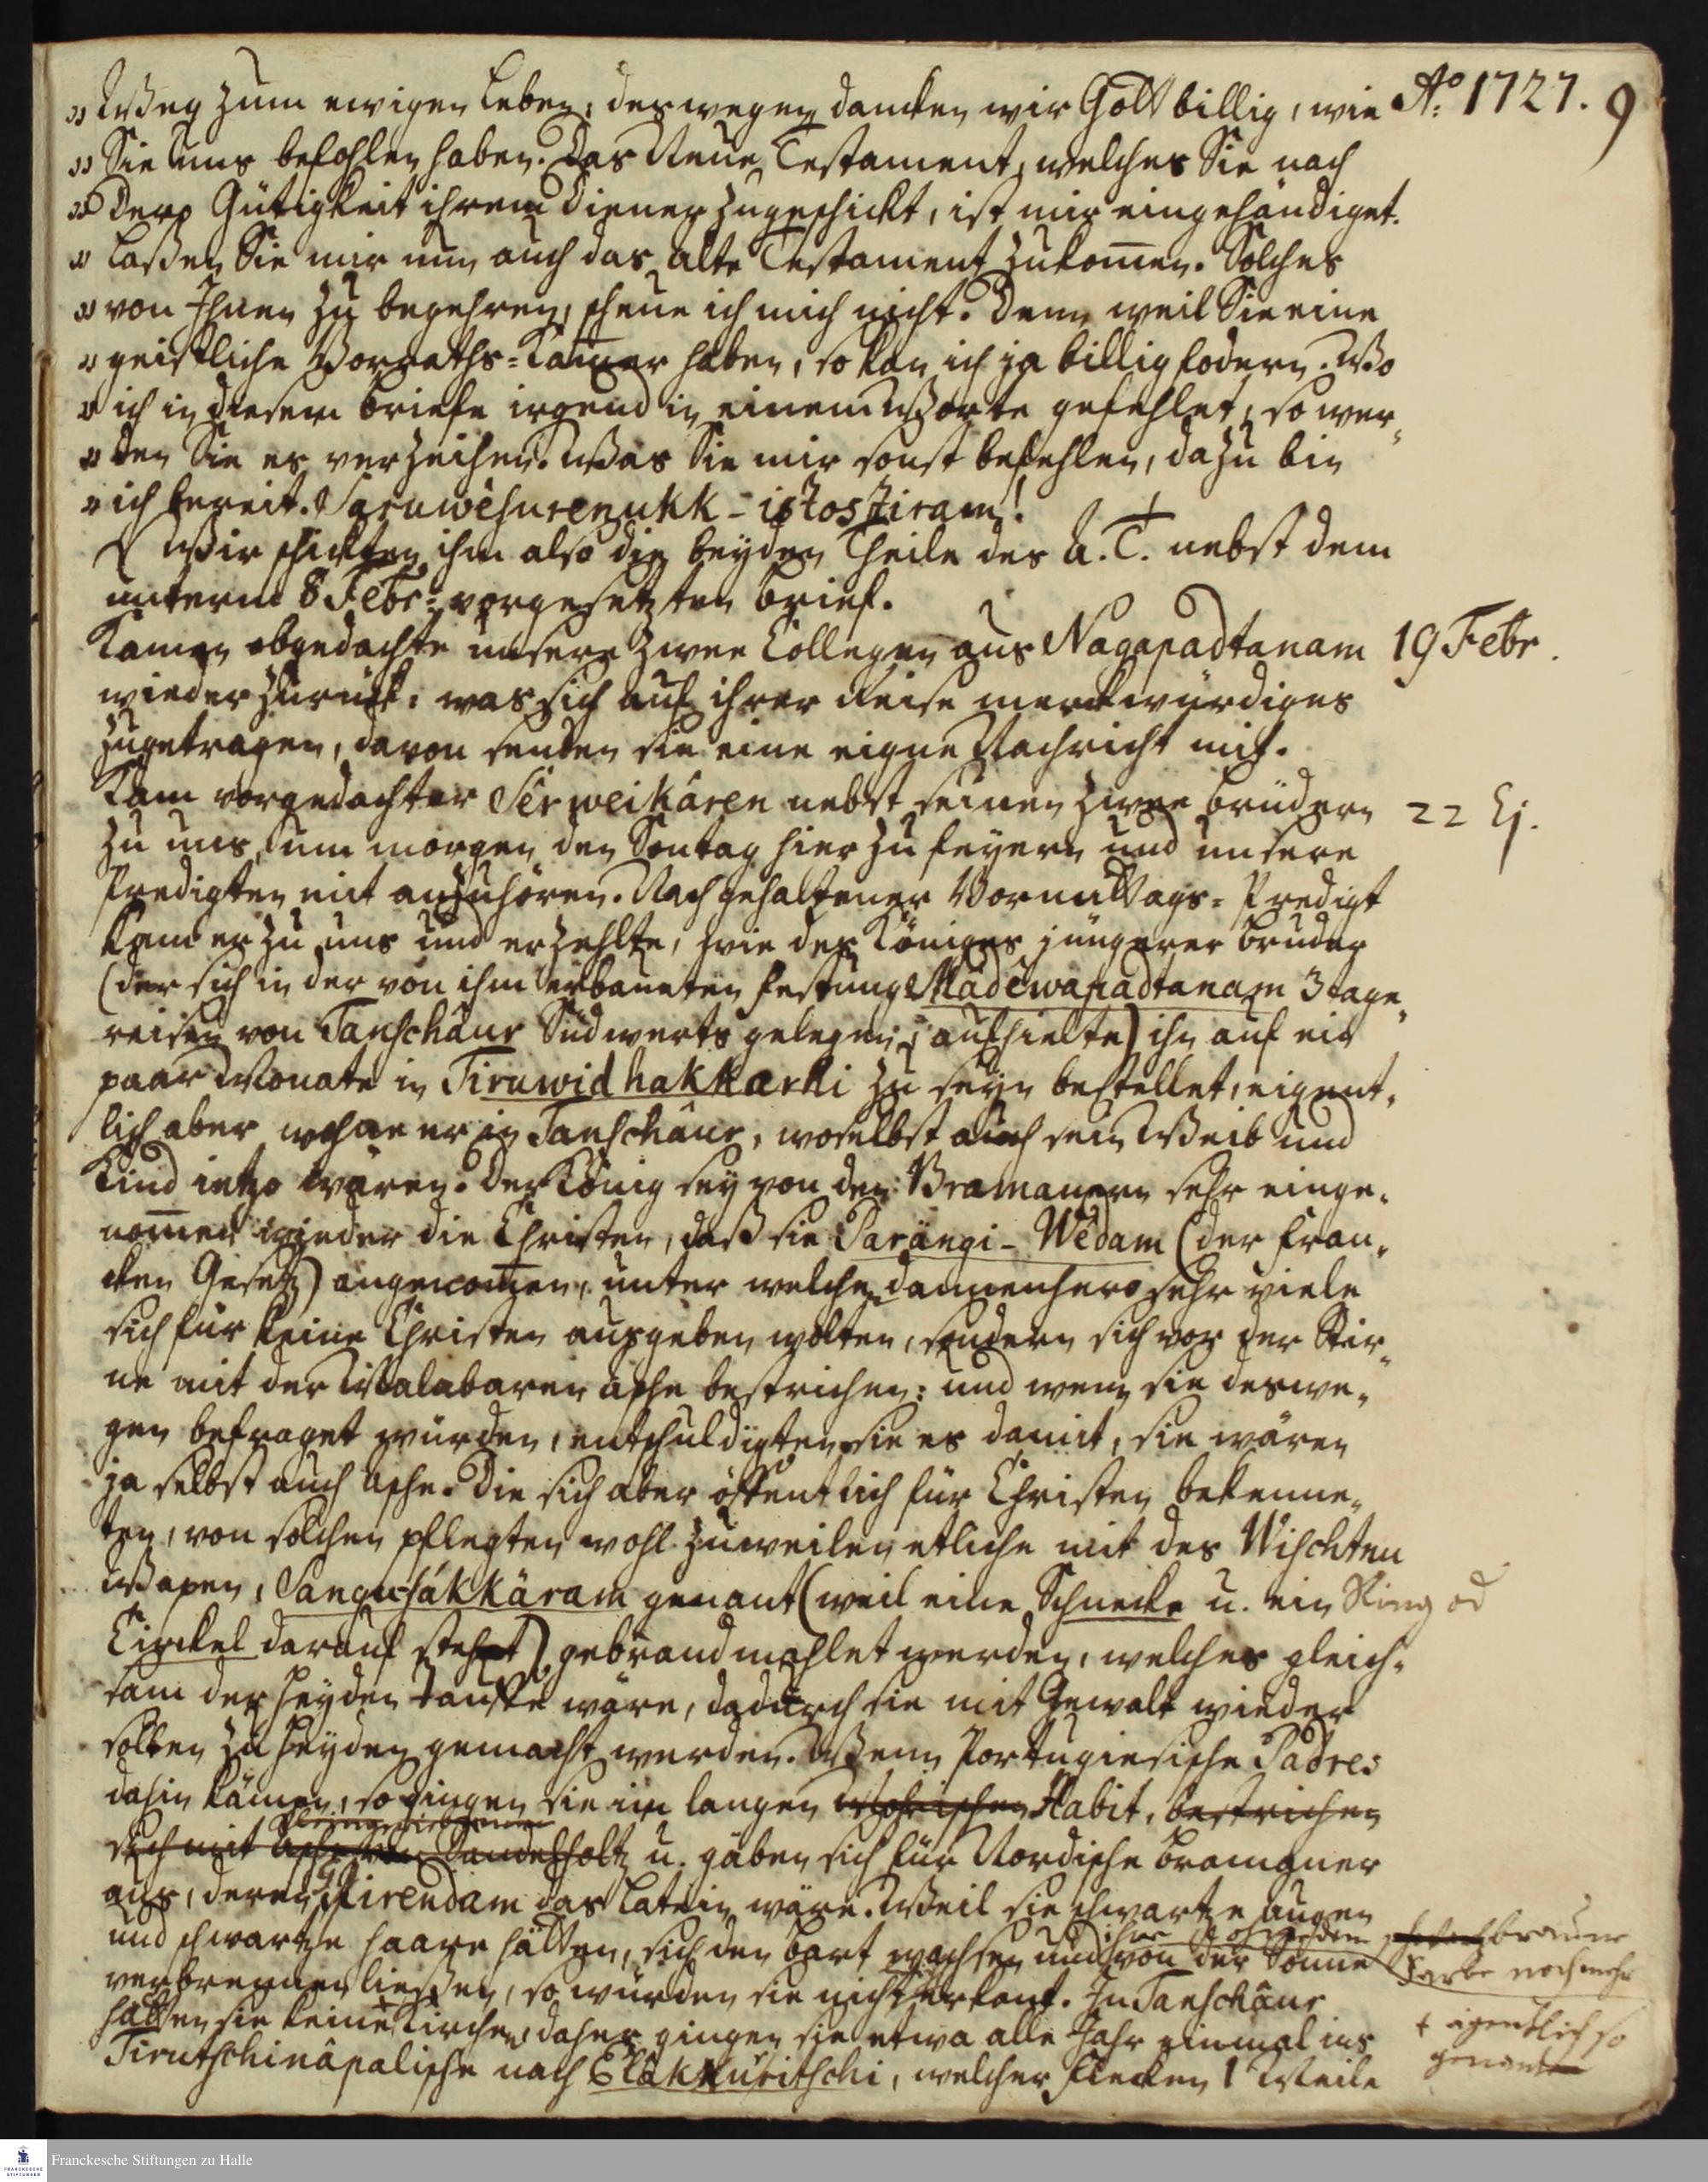 Aº 1727. 9
„ Weg zum ewigen Leben; deswegen dancken wir Gott billig, wie
„ Sie uns befohlen haben. Das Neue Testament, welches Sie nach
„ Dero Gütigkeit ihrem Diener zugeschickt, ist mir eingehändiget.
„ Laßen Sie mir nun auch das alte Testament zukom̄en. Solches
„ von Ihnen zu begehren, scheue ich mich nicht. Denn weil Sie eine
„ geistliche Vorraths-Kam̄er haben, so kan ich ja billig fodern. Wo
„ ich in diesem briefe irgend in einem Worte gefehlet, so wer-
„ den Sie es verzeihen. Was Sie mir sonst befehlen, dazu bin
„ ich bereit. Saruwêsurenukk - istostiram!
Wir schickten ihm also die beyden Theile des A. T. nebst dem
unterm 8 Febr: vorgesetzten brief.
19 Febr.
Kamen obgedachte unsere zwee Collegen aus Nagapadtanam
wieder zurück: was sich auf ihrer Reise merckwürdiges
zugetragen, davon senden sie eine eigne Nachricht mit.
22 Ej.
Kam vorgedachter Sêrweikâren nebst seinen zwee brüdern
zu uns, um morgen den Sontag hier zu feyern und unsere
Predigten mit anzuhören. Nach gehaltener Vormittags-Predigt
kam er zu uns und erzehlte, wie des Königes jüngerer bruder
(der sich in der von ihm erbaueten festung Mâdêwapadtanam 3 tage-
reisen von Tanschâur Südwerts gelegen, aufhielte) ihn auf ein
paar Monate in Tiruwidhakkarhi zu seyn bestellet, eigent-
lich aber wohne er in Tanschâur, woselbst auch sein Weib und
Kind ietzo wären. Der König sey von den Bramanern sehr einge-
nom̄en wieder die Christen, daß sie Parängi-Wêdam (der Fran-
cken Gesetz) angenom̄en, unter welchen dannenhero sehr viele
sich für keine Christen ausgeben wolten, sondern sich vor der Stir-
ne mit der Malabaren asche bestrichen: und wenn sie deswe-
gen befraget würden, entschuldigten sie es damit, sie wären
ja selbst auch Asche. Die sich aber öffentlich für Christen bekenne-
ten, von solchen pflegten wohl zuweilen etliche mit des Wischtnu
Wapen, Sangu-sákkäram genant (weil eine Schnecke u. ein Ring od
Circkel darauf stehet) gebrandmahlet werden, welches gleich-
sam der Heyden Tauffe wäre, dadurch sie mit Gewalt wieder
solten zu Heyden gemacht werden. Wenn Portugiesische Padres
dahin kämen, so gingen sie im langen Mohrischen Habit, bestrichen
sich mit Sandelholtz u. gäben sich für Nordische bramaner
aus, deren Kirendam das Latein wäre. Weil sie schwartze Augen
und schwartze haare hätten, sich den bart wachsen und ihre ohnedem braune
Farbe noch mehr von der Sonne
verbrennen liessen, so würden sie nicht erkant. In Tanschâur
hätten sie keine + Kirchen, daher gingen sie etwa alle Jahr einmal ins
+ eigentlich so
genante
Tirutschinâpalische nach Elâkkuritschi, welcher Flecken 1 Meile
Franckesche Stiftungen zu Halle